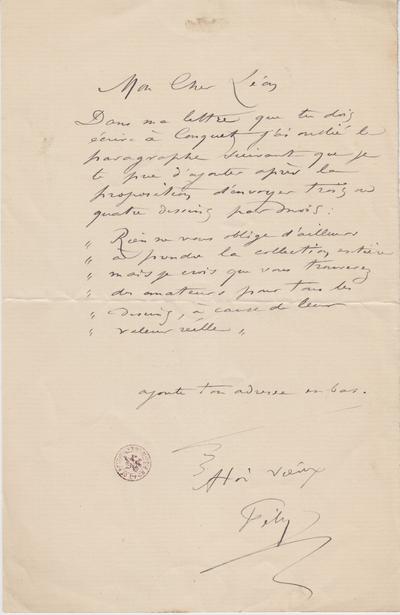 Mon Cher Léon
Dans ma lettre que tu dois
écrire à Conquet j'ai oublié le
paragraphe suivant que je
te prie d'ajouter après la
proposition d'envoyer trois ou
quatre dessins par mois :
" Rien ne vous oblige d'ailleurs
" à prendre la collection entière
" mais je crois que vous trouverez
" des amateurs pour tous les
" dessins, à cause de leur
" valeur réelle "
ajoute ton adresse en bas.
à toi vieux